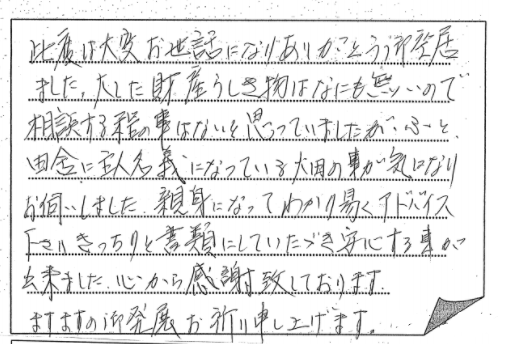 此度は大変お世話になりありがとう御座居
ました。大した財産らしき物はなにも無いので
相談する程の事はないと思っていましたが、ふと、
田舎に主人名義になっている大田の事が気になり
お伺いしました。親身になってわかり易くアドバイス
下さいきっちりと書類にしていただき安心する事が
出来ました。心から感謝致しております。
ますますの御発展お祈り申し上げます。